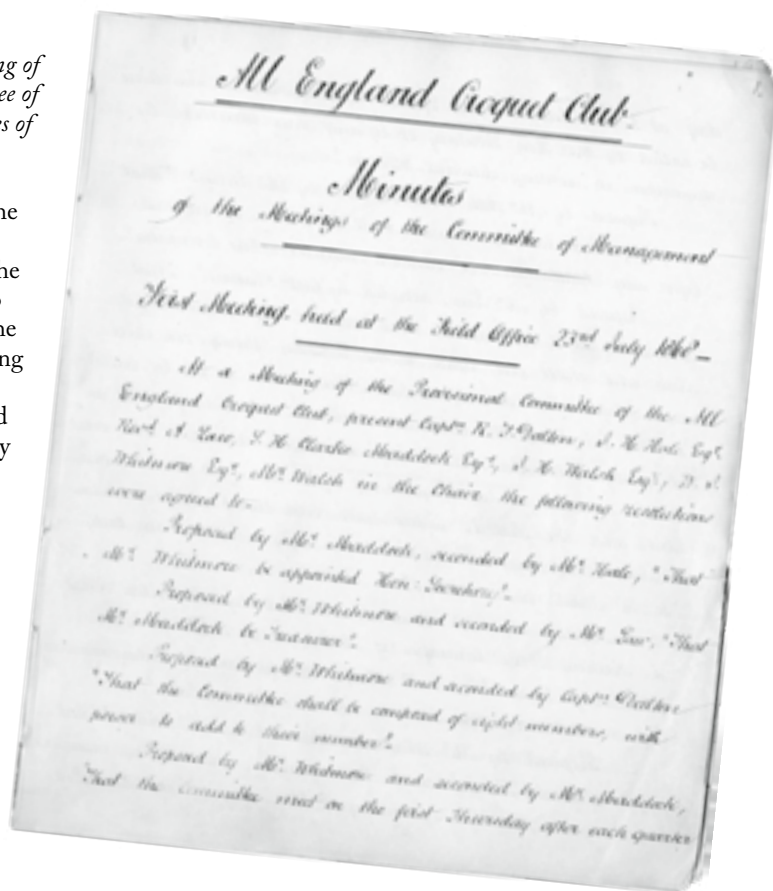 ng of
ee of
es of
he
he
o
he
ing
d
y
All England Croquet Club.
Minutes
of the Meetings of the Committee of Management
First Meeting held at the Field Office 23rd July 1868
At a Meeting of the Provisional Committee of the All
England Croquet Club, present Captn. R. F. Dalton, J. H. Hale Esqr.
Revd. A. Law, S. H. Clarke Maddock Esqr., J. H. Walsh Esqr.,
Whitmore Esqr., Mr. Walsh in the Chair the following resolutions
were agreed to.
Proposed by Mr. Maddock, seconded by Mr. Hale, "That
Mr. Whitmore be appointed Hon: Secretary".
Proposed by Mr. Whitmore and seconded by Mr. Law, "That
Mr. Maddock be Treasurer".
Proposed by Mr. Whitmore and seconded by Captn. Dalton
"That the Committee shall be composed of eight members, with
power to add to their number".
Proposed by Mr. Whitmore and seconded by Mr. Maddock,
"That the Committee meet on the first Thursday after each quarter